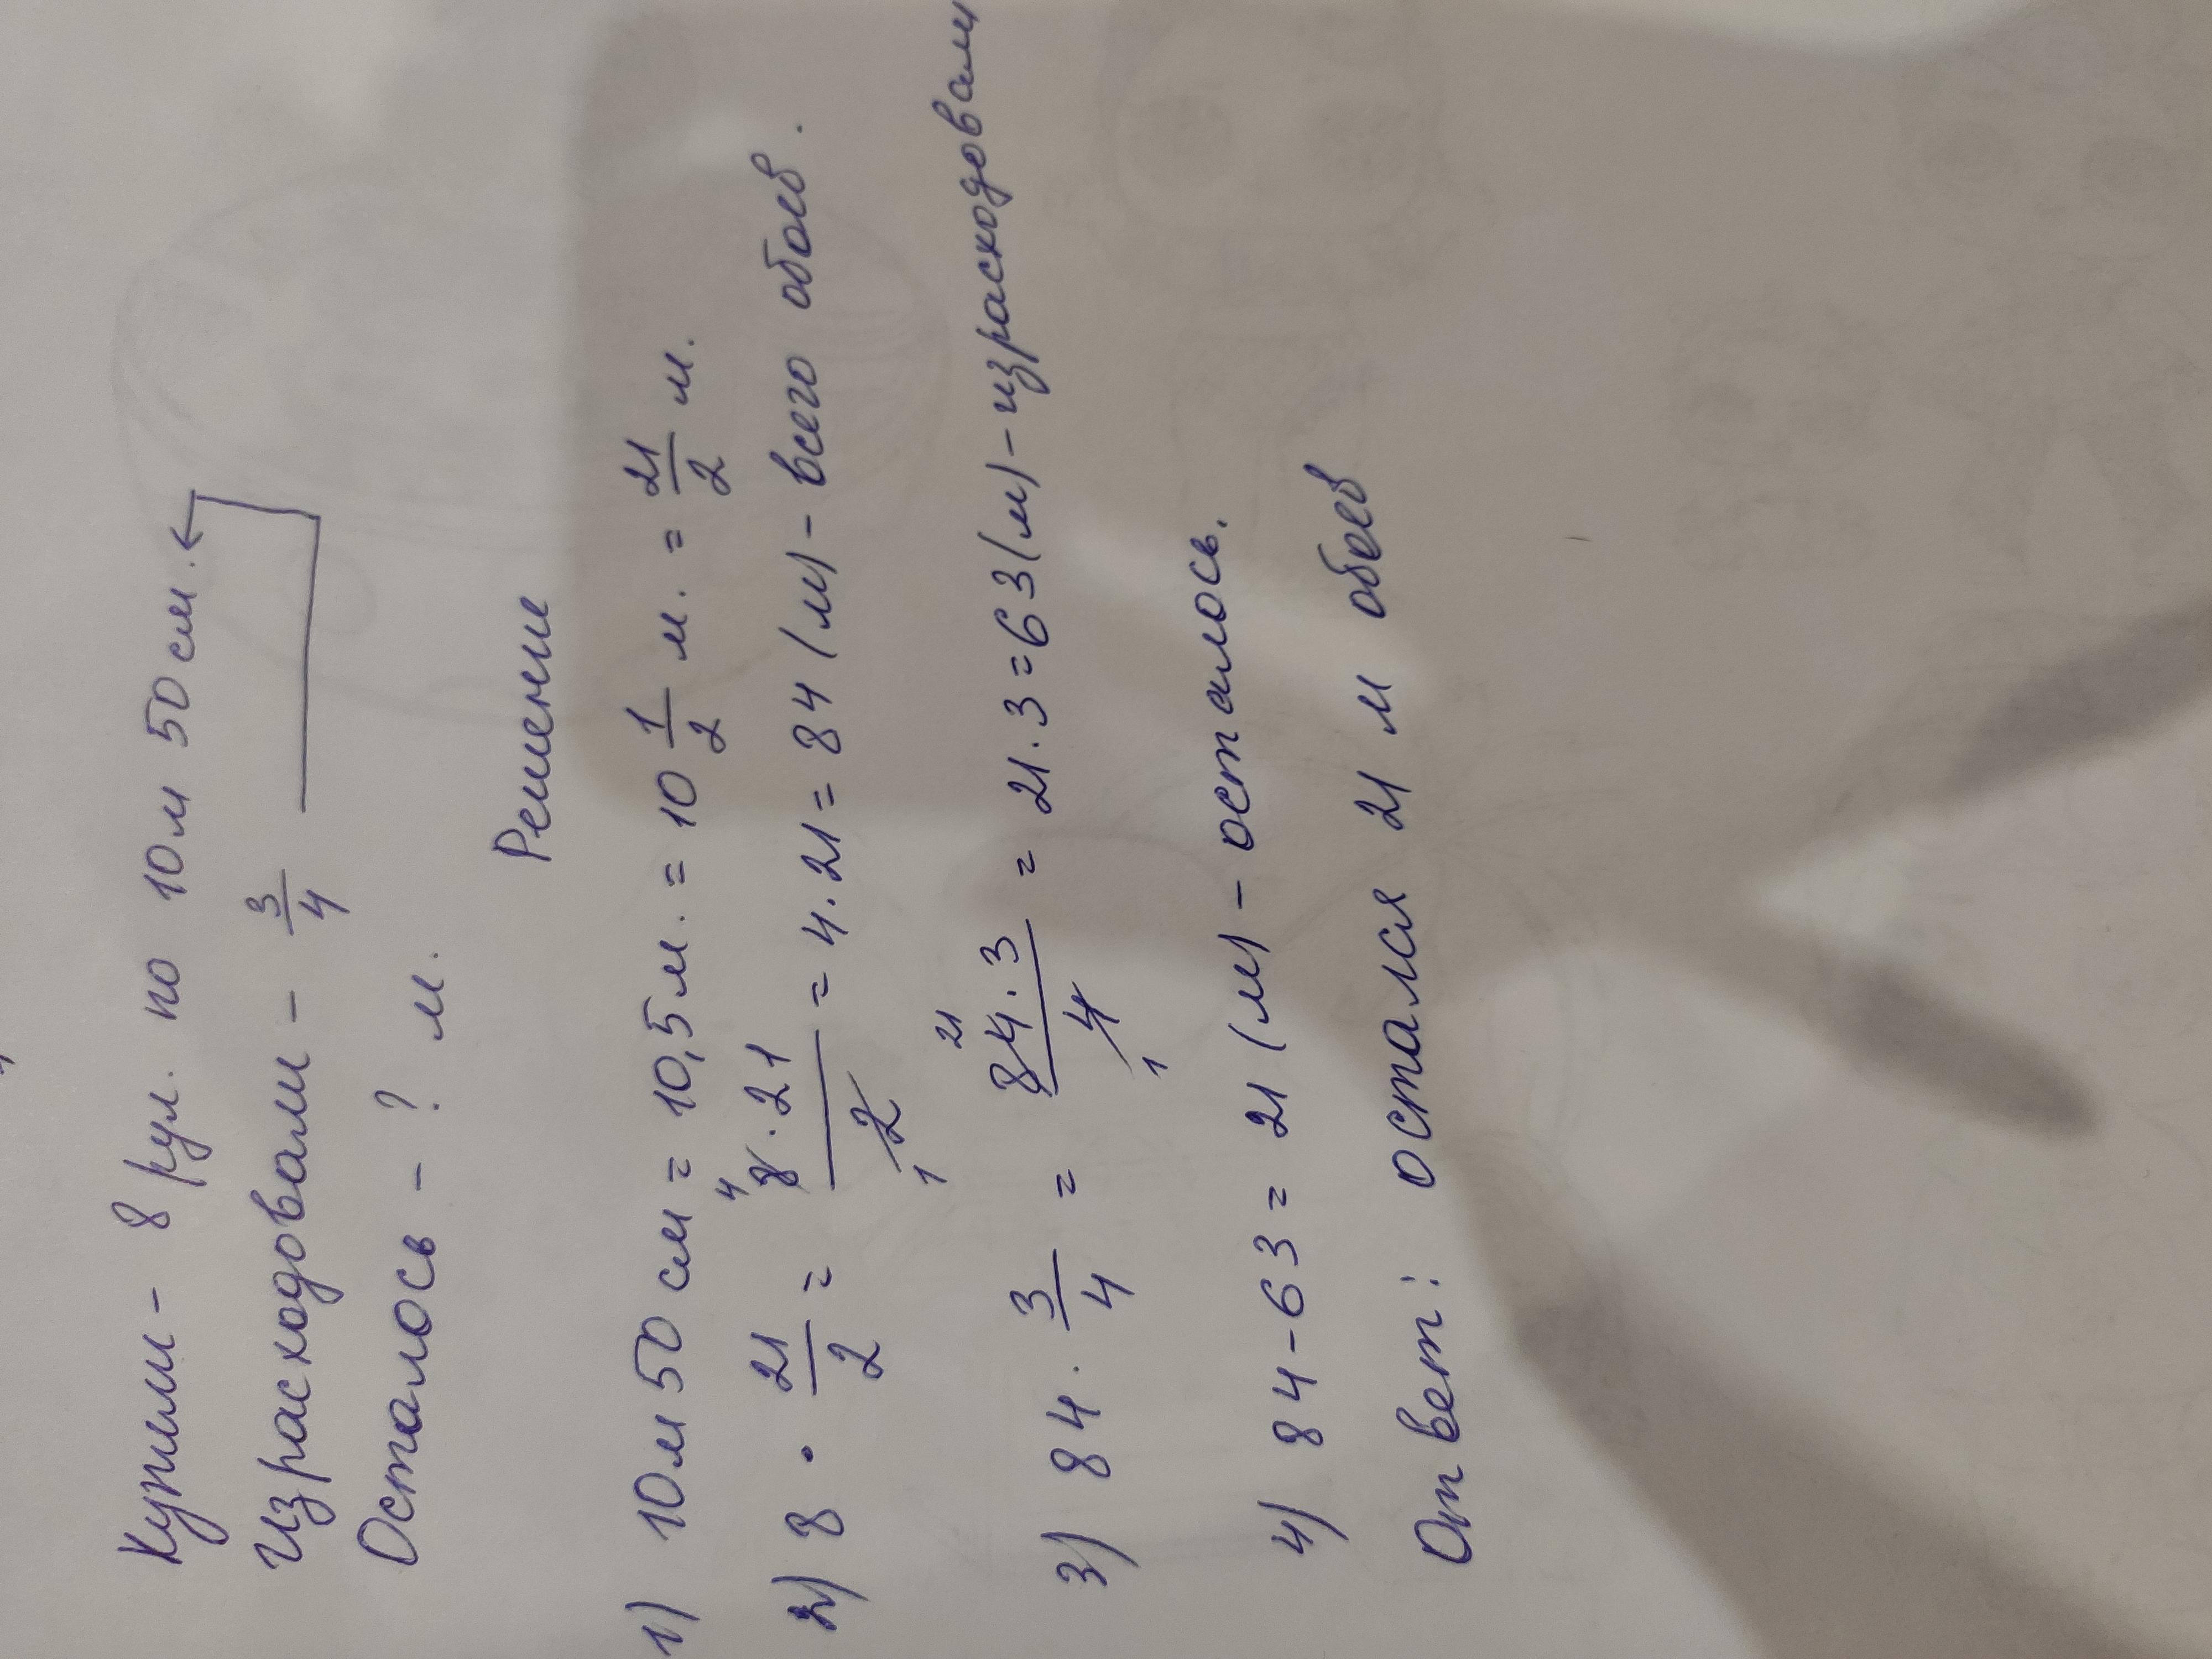 Купили - 8 рул. по 10 м 50 см.
Израсходовали - 3/4
Осталось - ? м.
Решение
1) 10 м 50 см = 10,5 м. = 10 1/2 м. = 21/2 м.
2) 8 · 21/2 = 8 · 21/2 = 4 · 21 = 84 (м) - всего обоев.
3) 84 · 3/4 = 84 · 3/4 = 21 · 3 = 63 (м) - израсходовали
4) 84 - 63 = 21 (м) - осталось.
Ответ: остался 21 м обоев